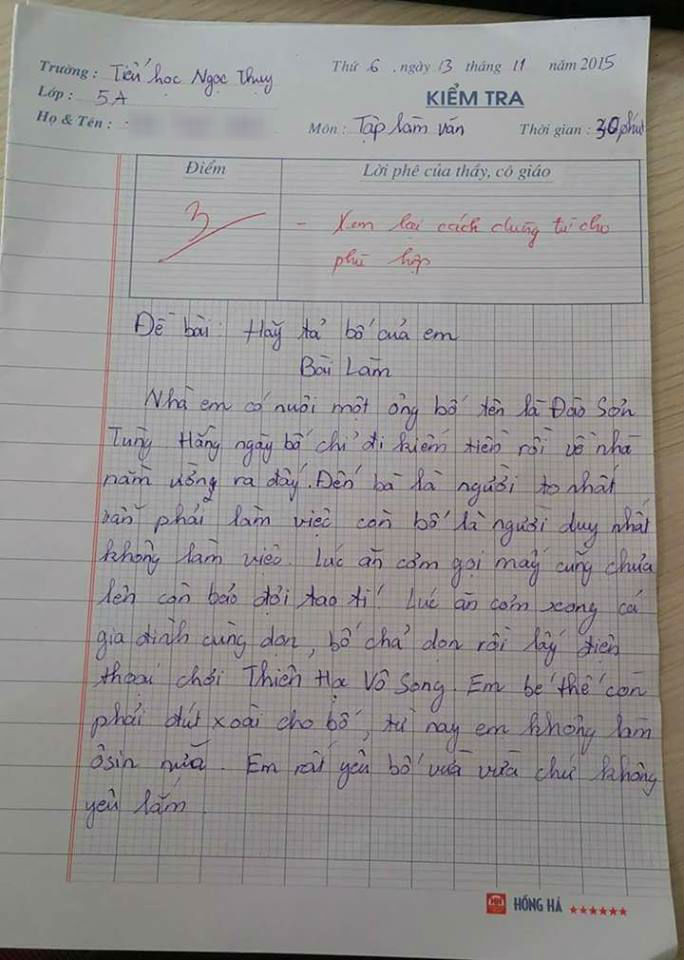 Trường : Tiểu học Ngọc Thụy
Thứ 6 , ngày 13 tháng 11 năm 2015
Lớp : 5A
KIỂM TRA
Họ & Tên :
Môn : Tập làm văn Thời gian : 30 phút
Điểm
Lời phê của thầy, cô giáo
3
- Xem lại cách dùng từ cho
phù hợp
Đề bài: Hãy tả bố của em
Bài Làm
Nhà em có nuôi một ông bố tên là Đào Sơn
Tùng Hằng ngày bố chỉ đi kiếm tiền rồi về nhà
nằm ườn ra đấy. Đến bà là người to nhất
vẫn phải làm việc còn bố là người duy nhất
không làm việc. Lúc ăn cơm gọi mấy cũng chưa
lên còn bảo đợi tao tí! Lúc ăn cơm xong cả
gia đình cùng dọn, bố chả dọn rồi lấy điện
thoại chơi Thiên Hạ Vô Song. Em bé thế còn
phải đút xoài cho bố, từ nay em không làm
ôsin nữa. Em rất yêu bố vừa vừa chứ không
yêu lắm.
HH HỒNG HÀ